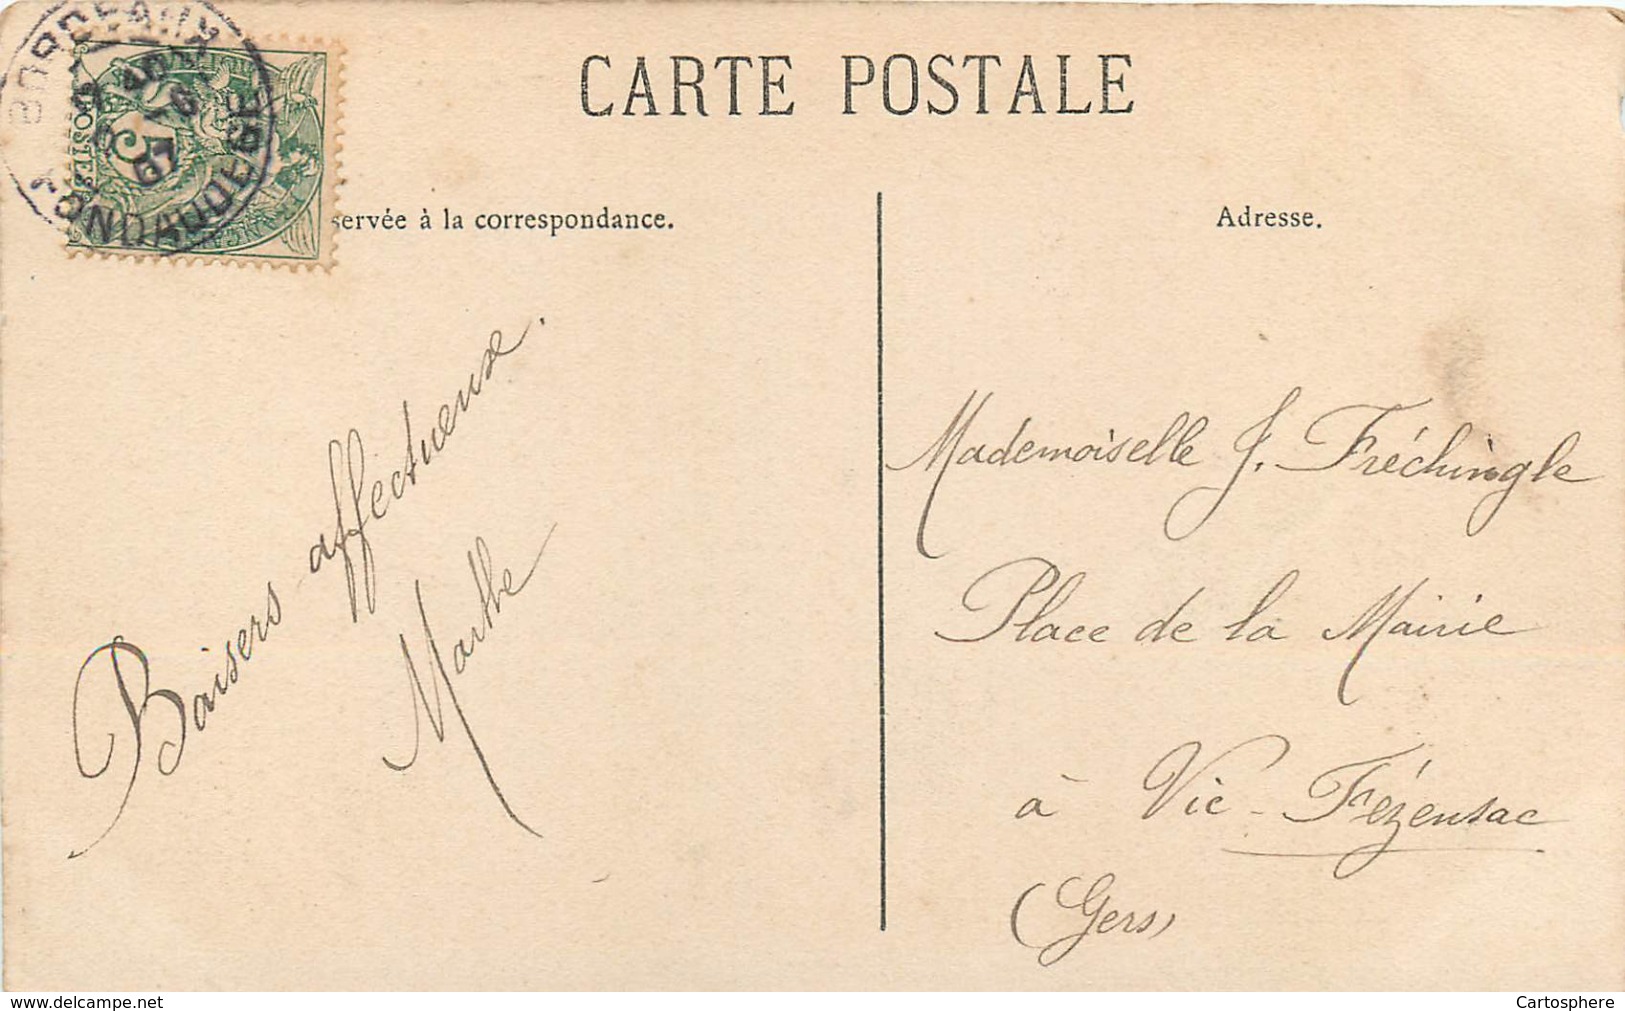 CARTE POSTALE
servée à la correspondance.
Adresse.
BORDEAUX
07
5
POSTES
Baisers affectueuse.
Marthe
Mademoiselle J. Fréchingle
Place de la Mairie
à Vic-Fézensac
(Gers)
www.delcampe.net
Cartosphere